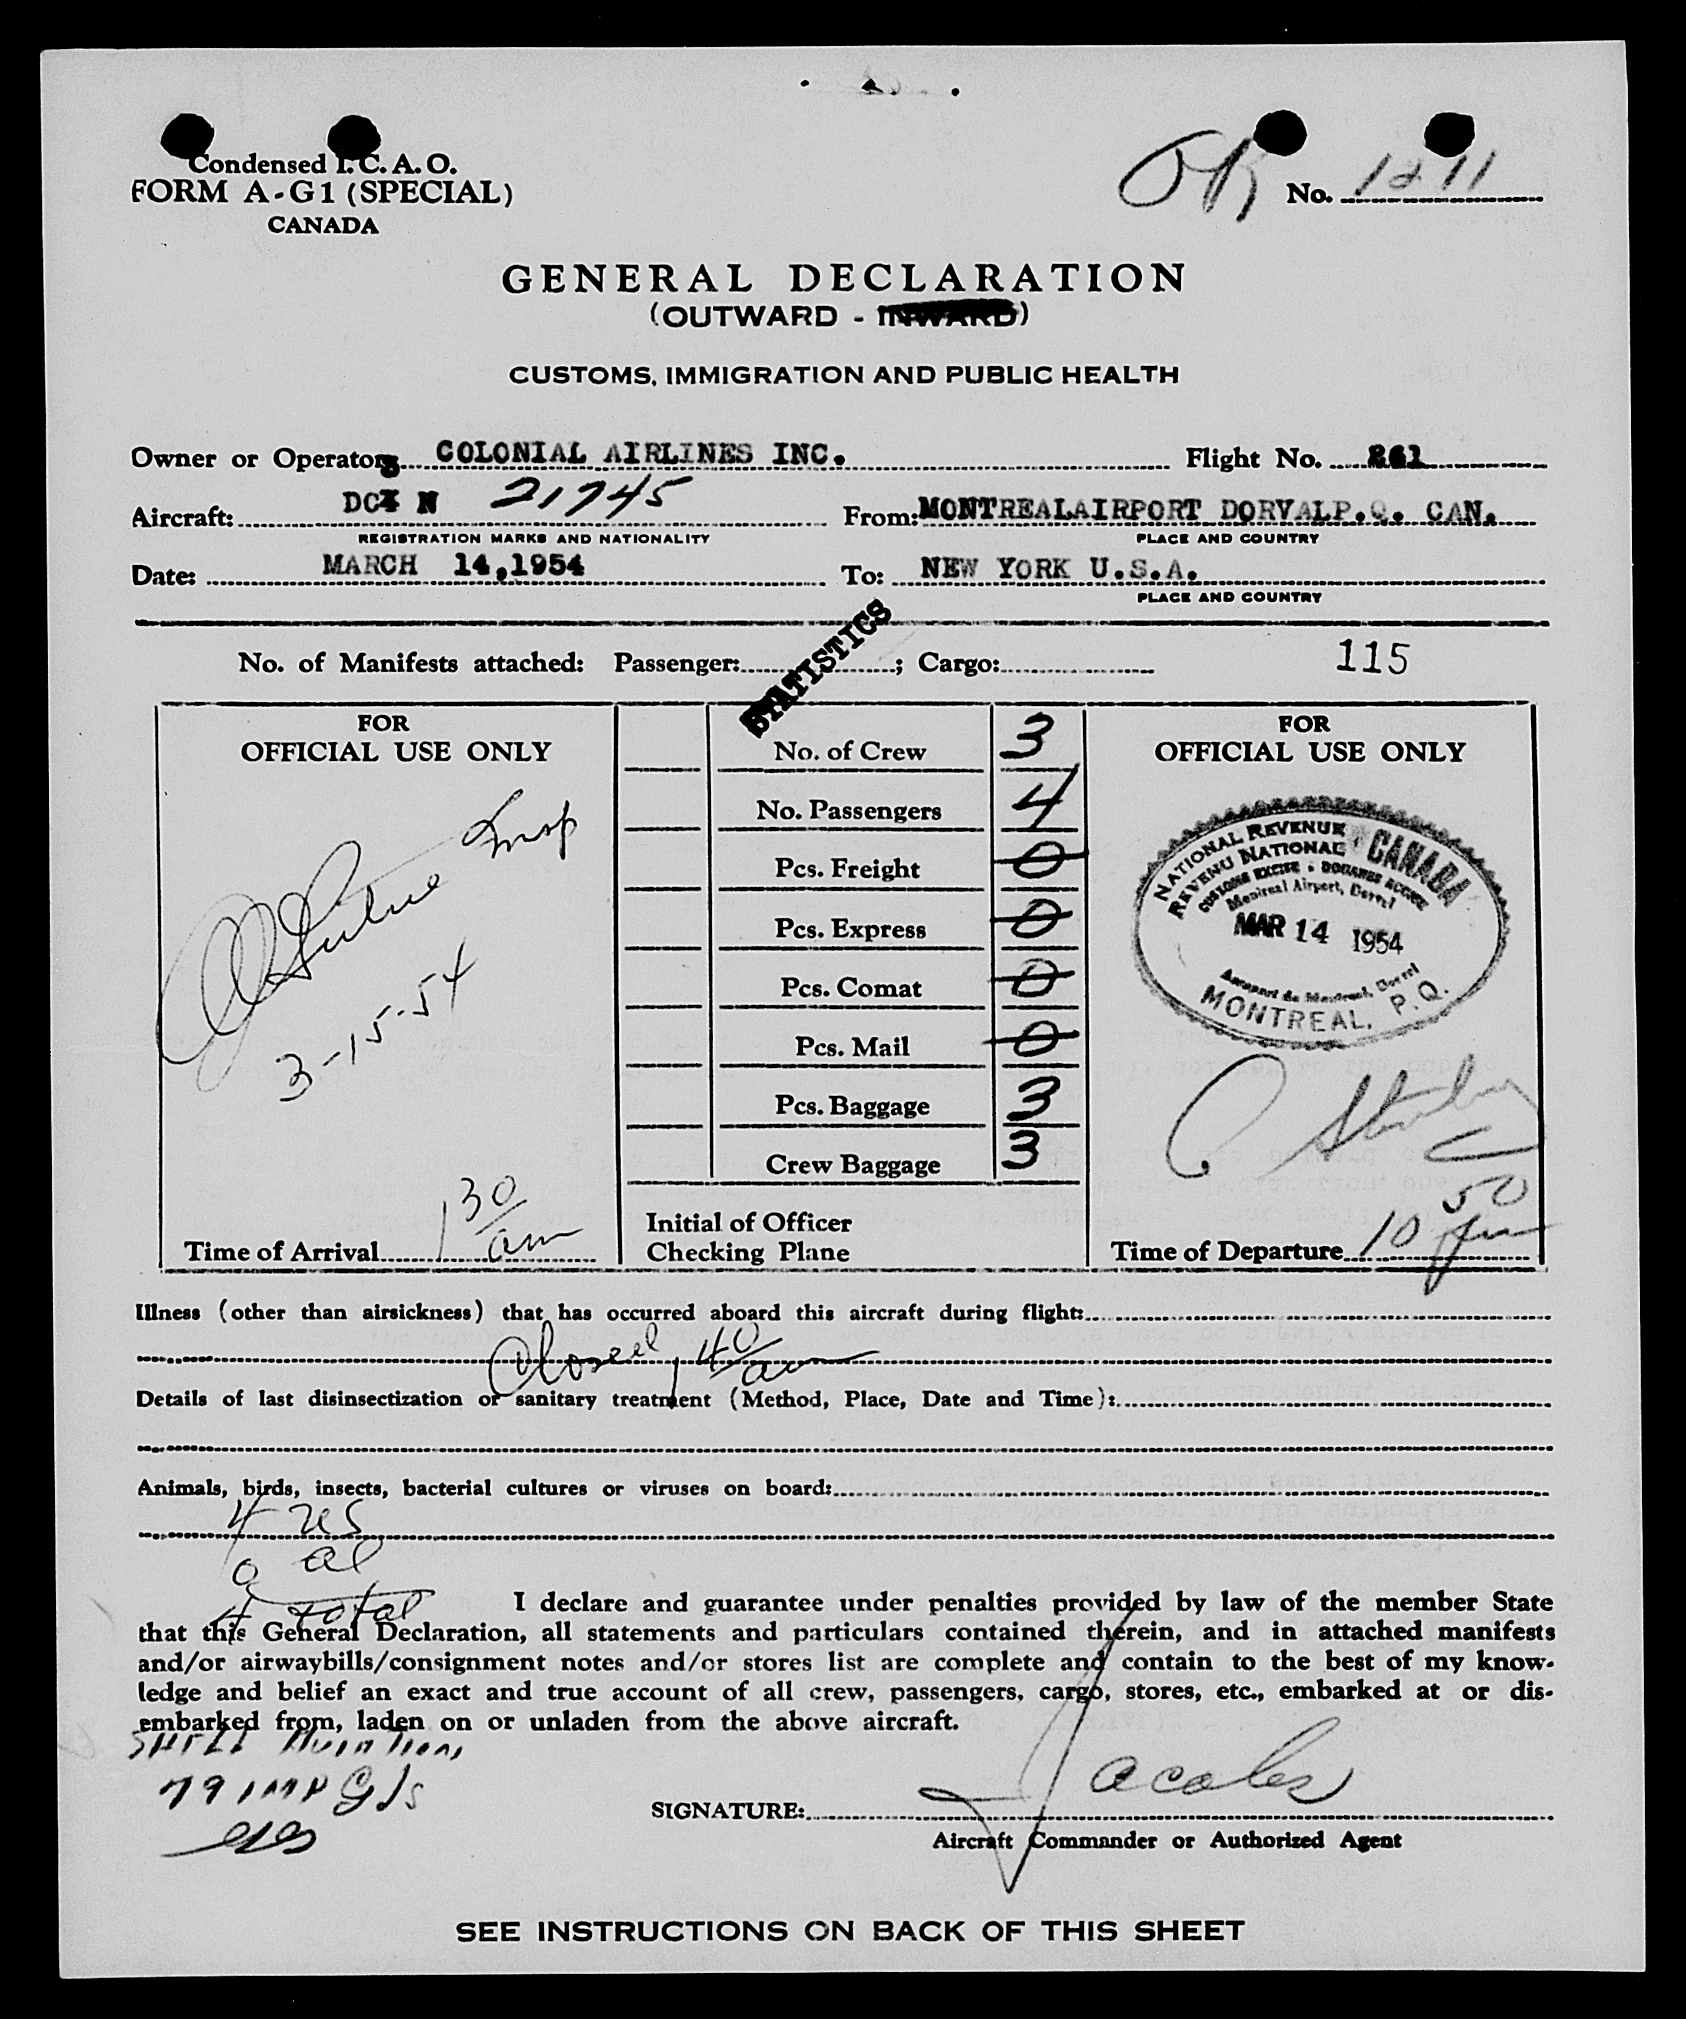 Condensed I.C.A.O.
FORM A-G1 (SPECIAL)
CANADA
OK No. 1211
GENERAL DECLARATION
(OUTWARD - INWARD)
CUSTOMS, IMMIGRATION AND PUBLIC HEALTH
Owner or Operator: COLONIAL AIRLINES INC. Flight No. 261
Aircraft: DC N 21745 From: MONTREALAIRPORT DORVALP.Q. CAN.
REGISTRATION MARKS AND NATIONALITY PLACE AND COUNTRY
Date: MARCH 14,1954 To: NEW YORK U.S.A.
PLACE AND COUNTRY
STATISTICS
No. of Manifests attached: Passenger: ; Cargo: 115
FOR
OFFICIAL USE ONLY
Insp
3-15-54
Time of Arrival 1 30 am
No. of Crew 3
No. Passengers 4
Pcs. Freight 0
Pcs. Express 0
Pcs. Comat 0
Pcs. Mail 0
Pcs. Baggage 3
Crew Baggage 3
Initial of Officer
Checking Plane
FOR
OFFICIAL USE ONLY
NATIONAL REVENUE CANADA
REVENU NATIONAL
CUSTOMS EXCISE • DOUANES ACCISE
Montreal Airport, Dorval
MAR 14 1954
Aeroport de Montreal, Dorval
MONTREAL, P.Q.
Time of Departure 10 50 pm
Illness (other than airsickness) that has occurred aboard this aircraft during flight:
Closed 1 40 am
Details of last disinsectization or sanitary treatment (Method, Place, Date and Time):
Animals, birds, insects, bacterial cultures or viruses on board:
4 us
0 al
4 total
I declare and guarantee under penalties provided by law of the member State
that this General Declaration, all statements and particulars contained therein, and in attached manifests
and/or airwaybills/consignment notes and/or stores list are complete and contain to the best of my know-
ledge and belief an exact and true account of all crew, passengers, cargo, stores, etc., embarked at or dis-
embarked from, laden on or unladen from the above aircraft.
SHELL Aviation
79 IMP Gls
SIGNATURE: Jacobs
Aircraft Commander or Authorized Agent
SEE INSTRUCTIONS ON BACK OF THIS SHEET